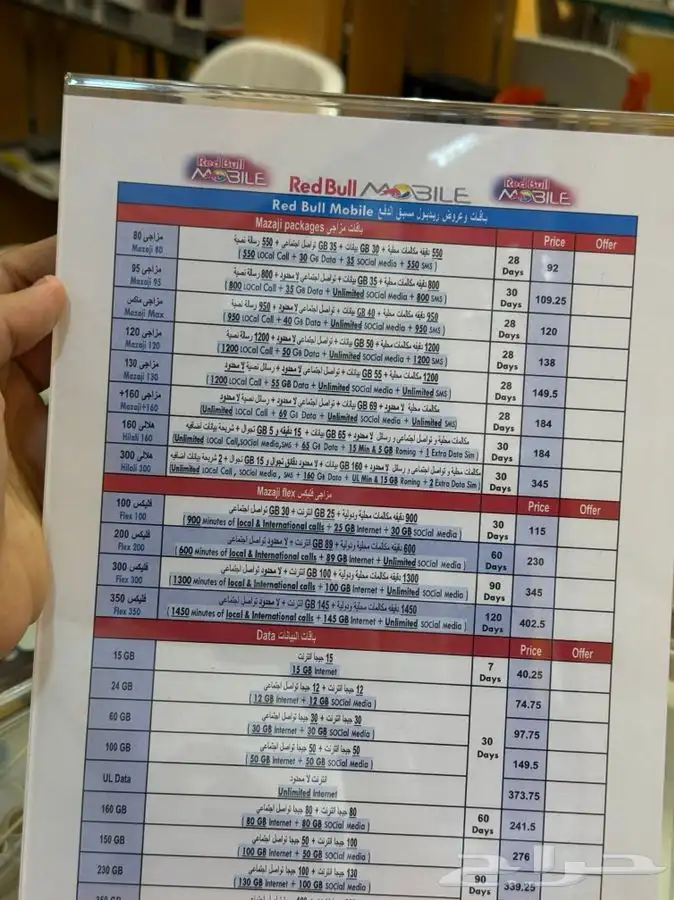 Red Bull MOBILE
Red Bull MOBILE
Red Bull MOBILE
باقات وعروض ريدبول مسبق الدفع Red Bull Mobile
باقات مزاجي Mazaji packages
Price
Offer
مزاجي 80
Mazaji 80
550 دقيقه مكالمات محلية + 30 GB بيانات + 35 GB تواصل اجتماعي + 550 رسالة نصية
( 550 LOCal Call + 30 GB Data + 35 SOCial Media + 550 SMS )
28 Days
92
مزاجي 95
Mazaji 95
800 دقيقه مكالمات محلية + 35 GB بيانات + تواصل اجتماعي لا محدود + 800 رسالة نصية
( 800 LOCal Call + 35 GB Data + Unlimited SOCial Media + 800 SMS )
30 Days
109.25
مزاجي ماكس
Mazaji Max
950 دقيقه مكالمات محلية + 40 GB بيانات + تواصل اجتماعي لا محدود + 950 رسالة نصية
( 950 LOCal Call + 40 GB Data + Unlimited SOCial Media + 950 SMS )
28 Days
120
مزاجي 120
Mazaji 120
1200 مكالمات محلية + 50 GB بيانات + تواصل اجتماعي لا محدود + 1200 رسالة نصية
( 1200 LOCal Call + 50 GB Data + Unlimited SOCial Media + 1200 SMS )
28 Days
138
مزاجي 130
Mazaji 130
1200 مكالمات محلية + 55 GB بيانات + تواصل اجتماعي لا محدود + رسائل نصية لا محدود
( 1200 LOCal Call + 55 GB Data + Unlimited SOCial Media + Unlimited SMS )
28 Days
149.5
مزاجي 160+
Mazaji+160
مكالمات محلية لا محدود + 69 GB بيانات + تواصل اجتماعي لا محدود + رسائل نصية لا محدود
(Unlimited LOCal Call + 69 GB Data + Unlimited SOCial Media + Unlimited SMS)
28 Days
184
هلالي 160
Hilali 160
مكالمات محلية و تواصل اجتماعي و رسائل لا محدود + 65 GB بيانات + 15 دقيقه و 5 GB تجوال + شريحة بيانات اضافيه
(Unlimited LOCal Call,SOCial Media,SMS + 65 GB Data + 15 Min & 5 GB Roming + 1 Extra Data Sim )
30 Days
184
هلالي 300
Hilali 300
مكالمات محلية و تواصل اجتماعي و رسائل لا محدود + 160 GB بيانات + لا محدود دقائق تجوال و 15 GB تجوال + 2 شريحة بيانات اضافيه
(Unlimited LOCal Call , SOCial Media , SMS + 160 GB Data + UL Min & 15 GB Roming + 2 Extra Data Sim )
30 Days
345
مزاجي فليكس Mazaji flex
Price
Offer
فليكس 100
Flex 100
900 دقيقه مكالمات محلية ودولية + 25 GB انترنت + 30 GB تواصل اجتماعي
( 900 Minutes of local & International calls + 25 GB Internet + 30 GB SOCial Media )
30 Days
115
فليكس 200
Flex 200
600 دقيقه مكالمات محلية ودولية + 89 GB انترنت + لا محدود تواصل اجتماعي
( 600 Minutes of local & International calls + 89 GB Internet + Unlimited SOCial Media )
60 Days
230
فليكس 300
Flex 300
1300 دقيقه مكالمات محلية ودولية + 100 GB انترنت + لا محدود تواصل اجتماعي
( 1300 Minutes of local & International calls + 100 GB Internet + Unlimited SOCial Media )
90 Days
345
فليكس 350
Flex 350
1450 دقيقه مكالمات محلية ودولية + 145 GB انترنت + لا محدود تواصل اجتماعي
( 1450 Minutes of local & International calls + 145 GB Internet + Unlimited SOCial Media )
120 Days
402.5
باقات البيانات Data
Price
Offer
15 GB
15 جيجا انترنت
15 GB Internet
7 Days
40.25
24 GB
12 جيجا انترنت + 12 جيجا تواصل اجتماعي
( 12 GB Internet + 12 GB SOCial Media )
30 Days
74.75
60 GB
30 جيجا انترنت + 30 جيجا تواصل اجتماعي
( 30 GB Internet + 30 GB SOCial Media )
97.75
100 GB
50 جيجا انترنت + 50 جيجا تواصل اجتماعي
( 50 GB Internet + 50 GB SOCial Media )
149.5
UL Data
انترنت لا محدود
Unlimited Internet
373.75
160 GB
80 جيجا انترنت + 80 جيجا تواصل اجتماعي
( 80 GB Internet + 80 GB SOCial Media )
60 Days
241.5
150 GB
100 جيجا انترنت + 50 جيجا تواصل اجتماعي
( 100 GB Internet + 50 GB SOCial Media )
276
230 GB
130 جيجا انترنت + 100 جيجا تواصل اجتماعي
( 130 GB Internet + 100 GB SOCial Media )
90 Days
339.25
حراج